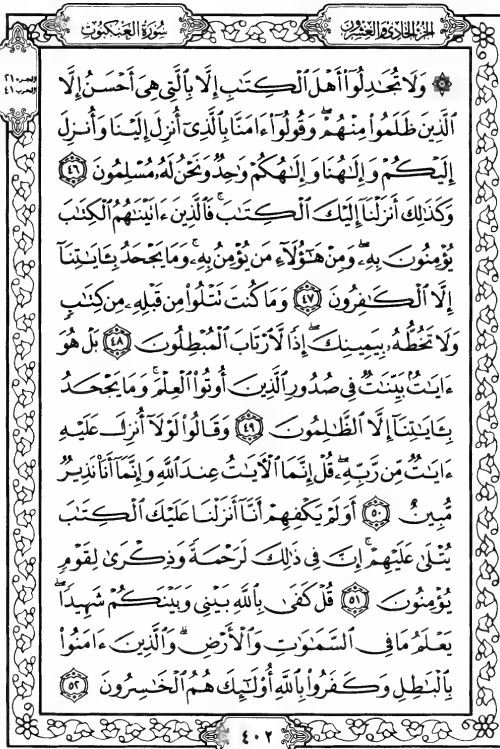 الجزء الحادي والعشرون
سورة العنكبوت
الجزء ٢١
الحزب ٤١
۞ وَلَا تُجَٰدِلُوٓا۟ أَهْلَ ٱلْكِتَٰبِ إِلَّا بِٱلَّتِى هِىَ أَحْسَنُ إِلَّا
ٱلَّذِينَ ظَلَمُوا۟ مِنْهُمْ ۖ وَقُولُوٓا۟ ءَامَنَّا بِٱلَّذِىٓ أُنزِلَ إِلَيْنَا وَأُنزِلَ
إِلَيْكُمْ وَإِلَٰهُنَا وَإِلَٰهُكُمْ وَٰحِدٌ وَنَحْنُ لَهُۥ مُسْلِمُونَ ٤٦
وَكَذَٰلِكَ أَنزَلْنَآ إِلَيْكَ ٱلْكِتَٰبَ ۚ فَٱلَّذِينَ ءَاتَيْنَٰهُمُ ٱلْكِتَٰبَ
يُؤْمِنُونَ بِهِۦ ۖ وَمِنْ هَٰٓؤُلَآءِ مَن يُؤْمِنُ بِهِۦ ۚ وَمَا يَجْحَدُ بِـَٔايَٰتِنَآ
إِلَّا ٱلْكَٰفِرُونَ ٤٧ وَمَا كُنتَ تَتْلُوا۟ مِن قَبْلِهِۦ مِن كِتَٰبٍ
وَلَا تَخُطُّهُۥ بِيَمِينِكَ ۖ إِذًا لَّٱرْتَابَ ٱلْمُبْطِلُونَ ٤٨ بَلْ هُوَ
ءَايَٰتٌۢ بَيِّنَٰتٌ فِى صُدُورِ ٱلَّذِينَ أُوتُوا۟ ٱلْعِلْمَ ۚ وَمَا يَجْحَدُ
بِـَٔايَٰتِنَآ إِلَّا ٱلظَّٰلِمُونَ ٤٩ وَقَالُوا۟ لَوْلَآ أُنزِلَ عَلَيْهِ
ءَايَٰتٌ مِّن رَّبِّهِۦ ۖ قُلْ إِنَّمَا ٱلْءَايَٰتُ عِندَ ٱللَّهِ وَإِنَّمَآ أَنَا۠ نَذِيرٌ
مُّبِينٌ ٥٠ أَوَلَمْ يَكْفِهِمْ أَنَّآ أَنزَلْنَا عَلَيْكَ ٱلْكِتَٰبَ
يُتْلَىٰ عَلَيْهِمْ ۚ إِنَّ فِى ذَٰلِكَ لَرَحْمَةً وَذِكْرَىٰ لِقَوْمٍ
يُؤْمِنُونَ ٥١ قُلْ كَفَىٰ بِٱللَّهِ بَيْنِى وَبَيْنَكُمْ شَهِيدًا ۖ
يَعْلَمُ مَا فِى ٱلسَّمَٰوَٰتِ وَٱلْأَرْضِ ۗ وَٱلَّذِينَ ءَامَنُوا۟
بِٱلْبَٰطِلِ وَكَفَرُوا۟ بِٱللَّهِ أُو۟لَٰٓئِكَ هُمُ ٱلْخَٰسِرُونَ ٥٢
٤٠٢